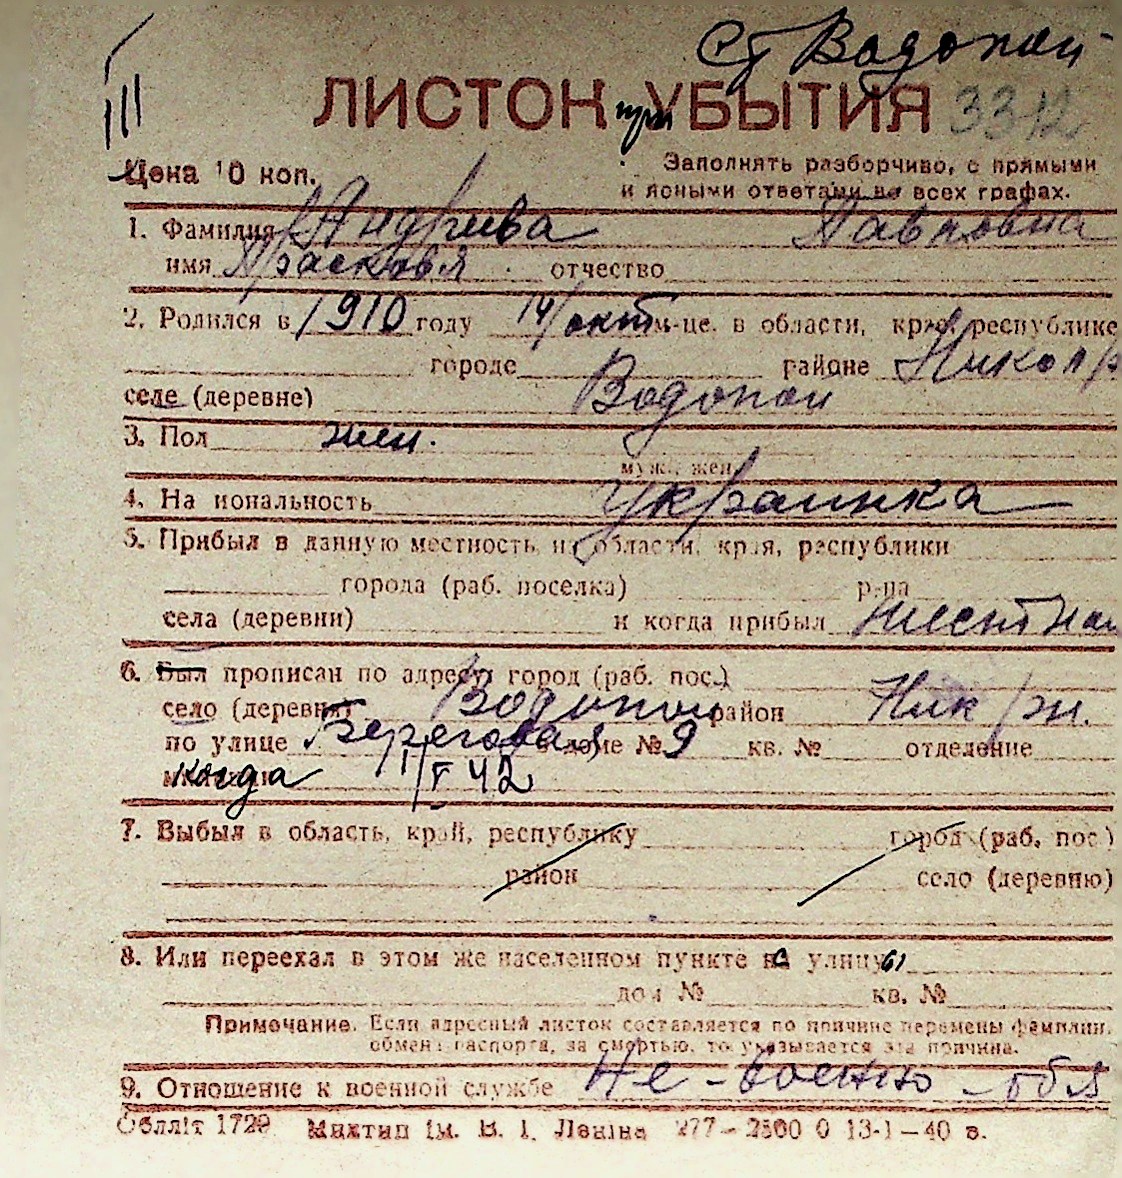 Ст Водопой
ЛИСТОК при УБЫТИЯ 3312
Цена 10 коп.
Заполнять разборчиво, с прямыми
и ясными ответами во всех графах.
1. Фамилия Андрева Павловна
имя Прасковья отчество
2. Родился в 1910 году 14/окт м-це. в области, крае, республике
городе районе Никол р
селе (деревне) Водопой
3. Пол жен.
муж., жен.
4. На иональность украинка
5. Прибыл в данную местность из области, края, республики
города (раб. поселка) р-на
села (деревни) и когда прибыл
6. Был прописан по адресу город (раб. пос.)
село (деревня) Водопой район Ник рн.
по улице Береговая доме № 9 кв. № отделение
когда 1/I 42
7. Выбыл в область, край, республику город (раб. пос.)
район село (деревню)
8. Или переехал в этом же населенном пункте с улицы
дом № кв. №
Примечание. Если адресный листок составляется по причине перемены фамилии,
обмена паспорта, за смертью, то указывается эта причина.
9. Отношение к военной службе Не-военно-обя
Обллiт 1729 Миктип iм. В. I. Ленiна 277—2500 0 13-I—40 в.